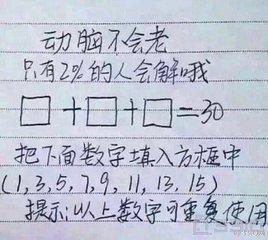 动脑不会老
只有2%的人会解哦
□+□+□=30
把下面数字填入方框中
(1,3,5,7,9,11,13,15)
提示:以上数字可重复使用